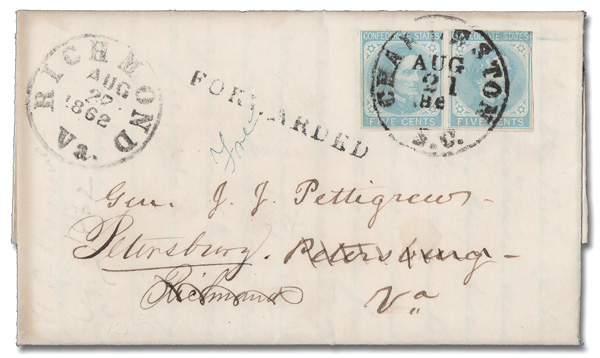 RICHMOND Va.
AUG
22
1862
FORWARDED
Free
CONFEDERATE STATES
FIVE CENTS
CONFEDERATE STATES
FIVE CENTS
CHARLESTON S.C.
AUG
21
186
Gen. J. J. Pettigrew-
Petersburg. Petersburg-
Richmond Va